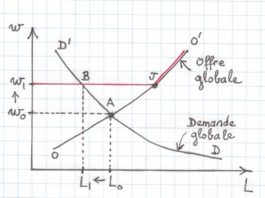 w
D'
O'
Offre
globale
B
J
w₁
A
w₀
Demande
globale
O
D
L₁ ← L₀
L